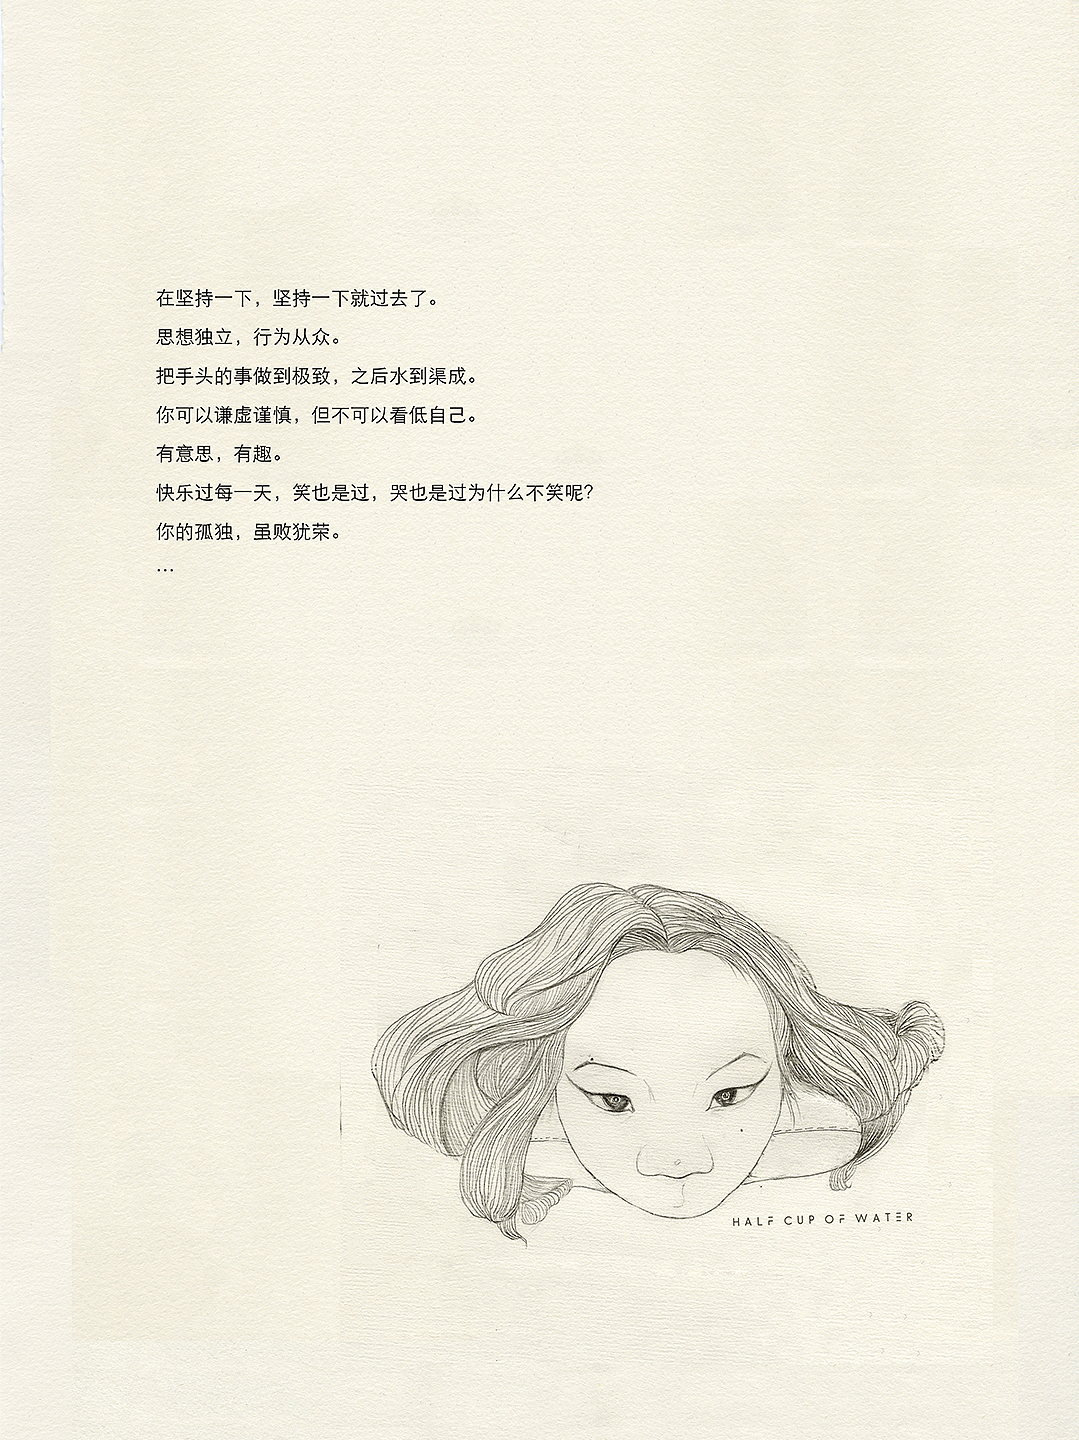 在坚持一下，坚持一下就过去了。
思想独立，行为从众。
把手头的事做到极致，之后水到渠成。
你可以谦虚谨慎，但不可以看低自己。
有意思，有趣。
快乐过每一天，笑也是过，哭也是过为什么不笑呢？
你的孤独，虽败犹荣。
…
HALF CUP OF WATER